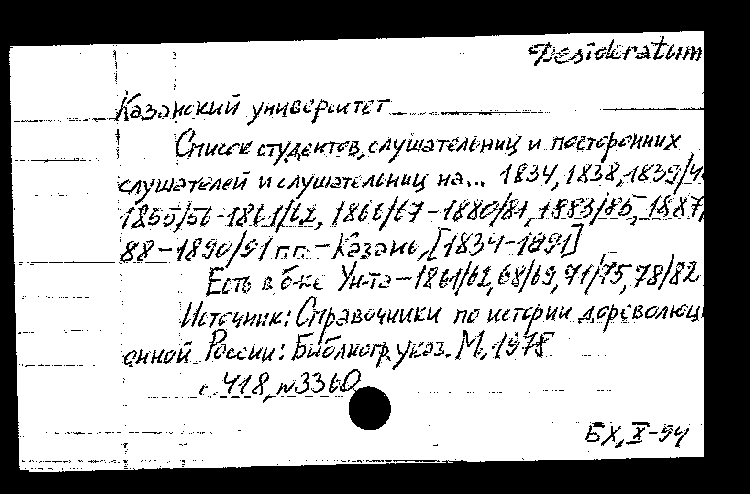 Desideratum
Казанский университет
Список студентов, слушательниц и посторонних
слушателей и слушательниц на... 1834, 1838, 1839/4
1855/56-1861/62, 1866/67-1880/81, 1883/85, 1887/
88-1890/91 гг.-Казань, [1834-1891]
Есть в б-ке Ун-та-1861/62, 68/69, 71/75, 78/82
Источник: Справочники по истории дореволюци
онной России: Библиогр. указ. М., 1978
с. 418, №3360
БХ, X-94